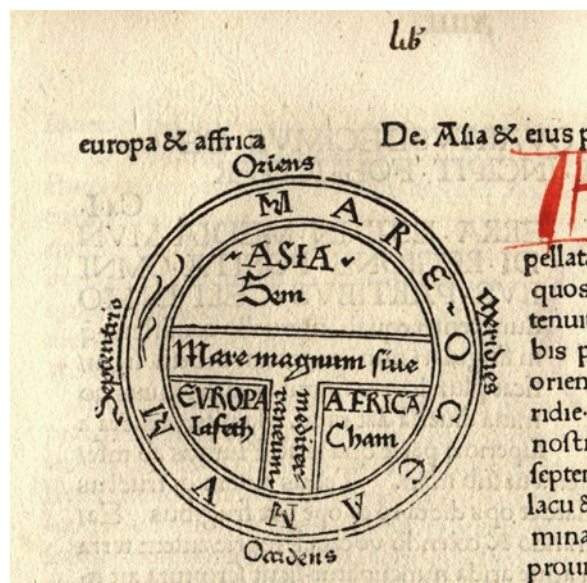 lib
europa & affrica
De. Asia & eius p
Oriens
MARE OCCEANUM
ASIA
Sem
Septentrio
Meridies
Mare magnum siue
mediter
raneum
EVROPA
Iafeth
AFRICA
Cham
Occidens
TH
pellata
quos
tenuit
bis p
orien
ridie
nostr
septen
lacu &
mina
prouin